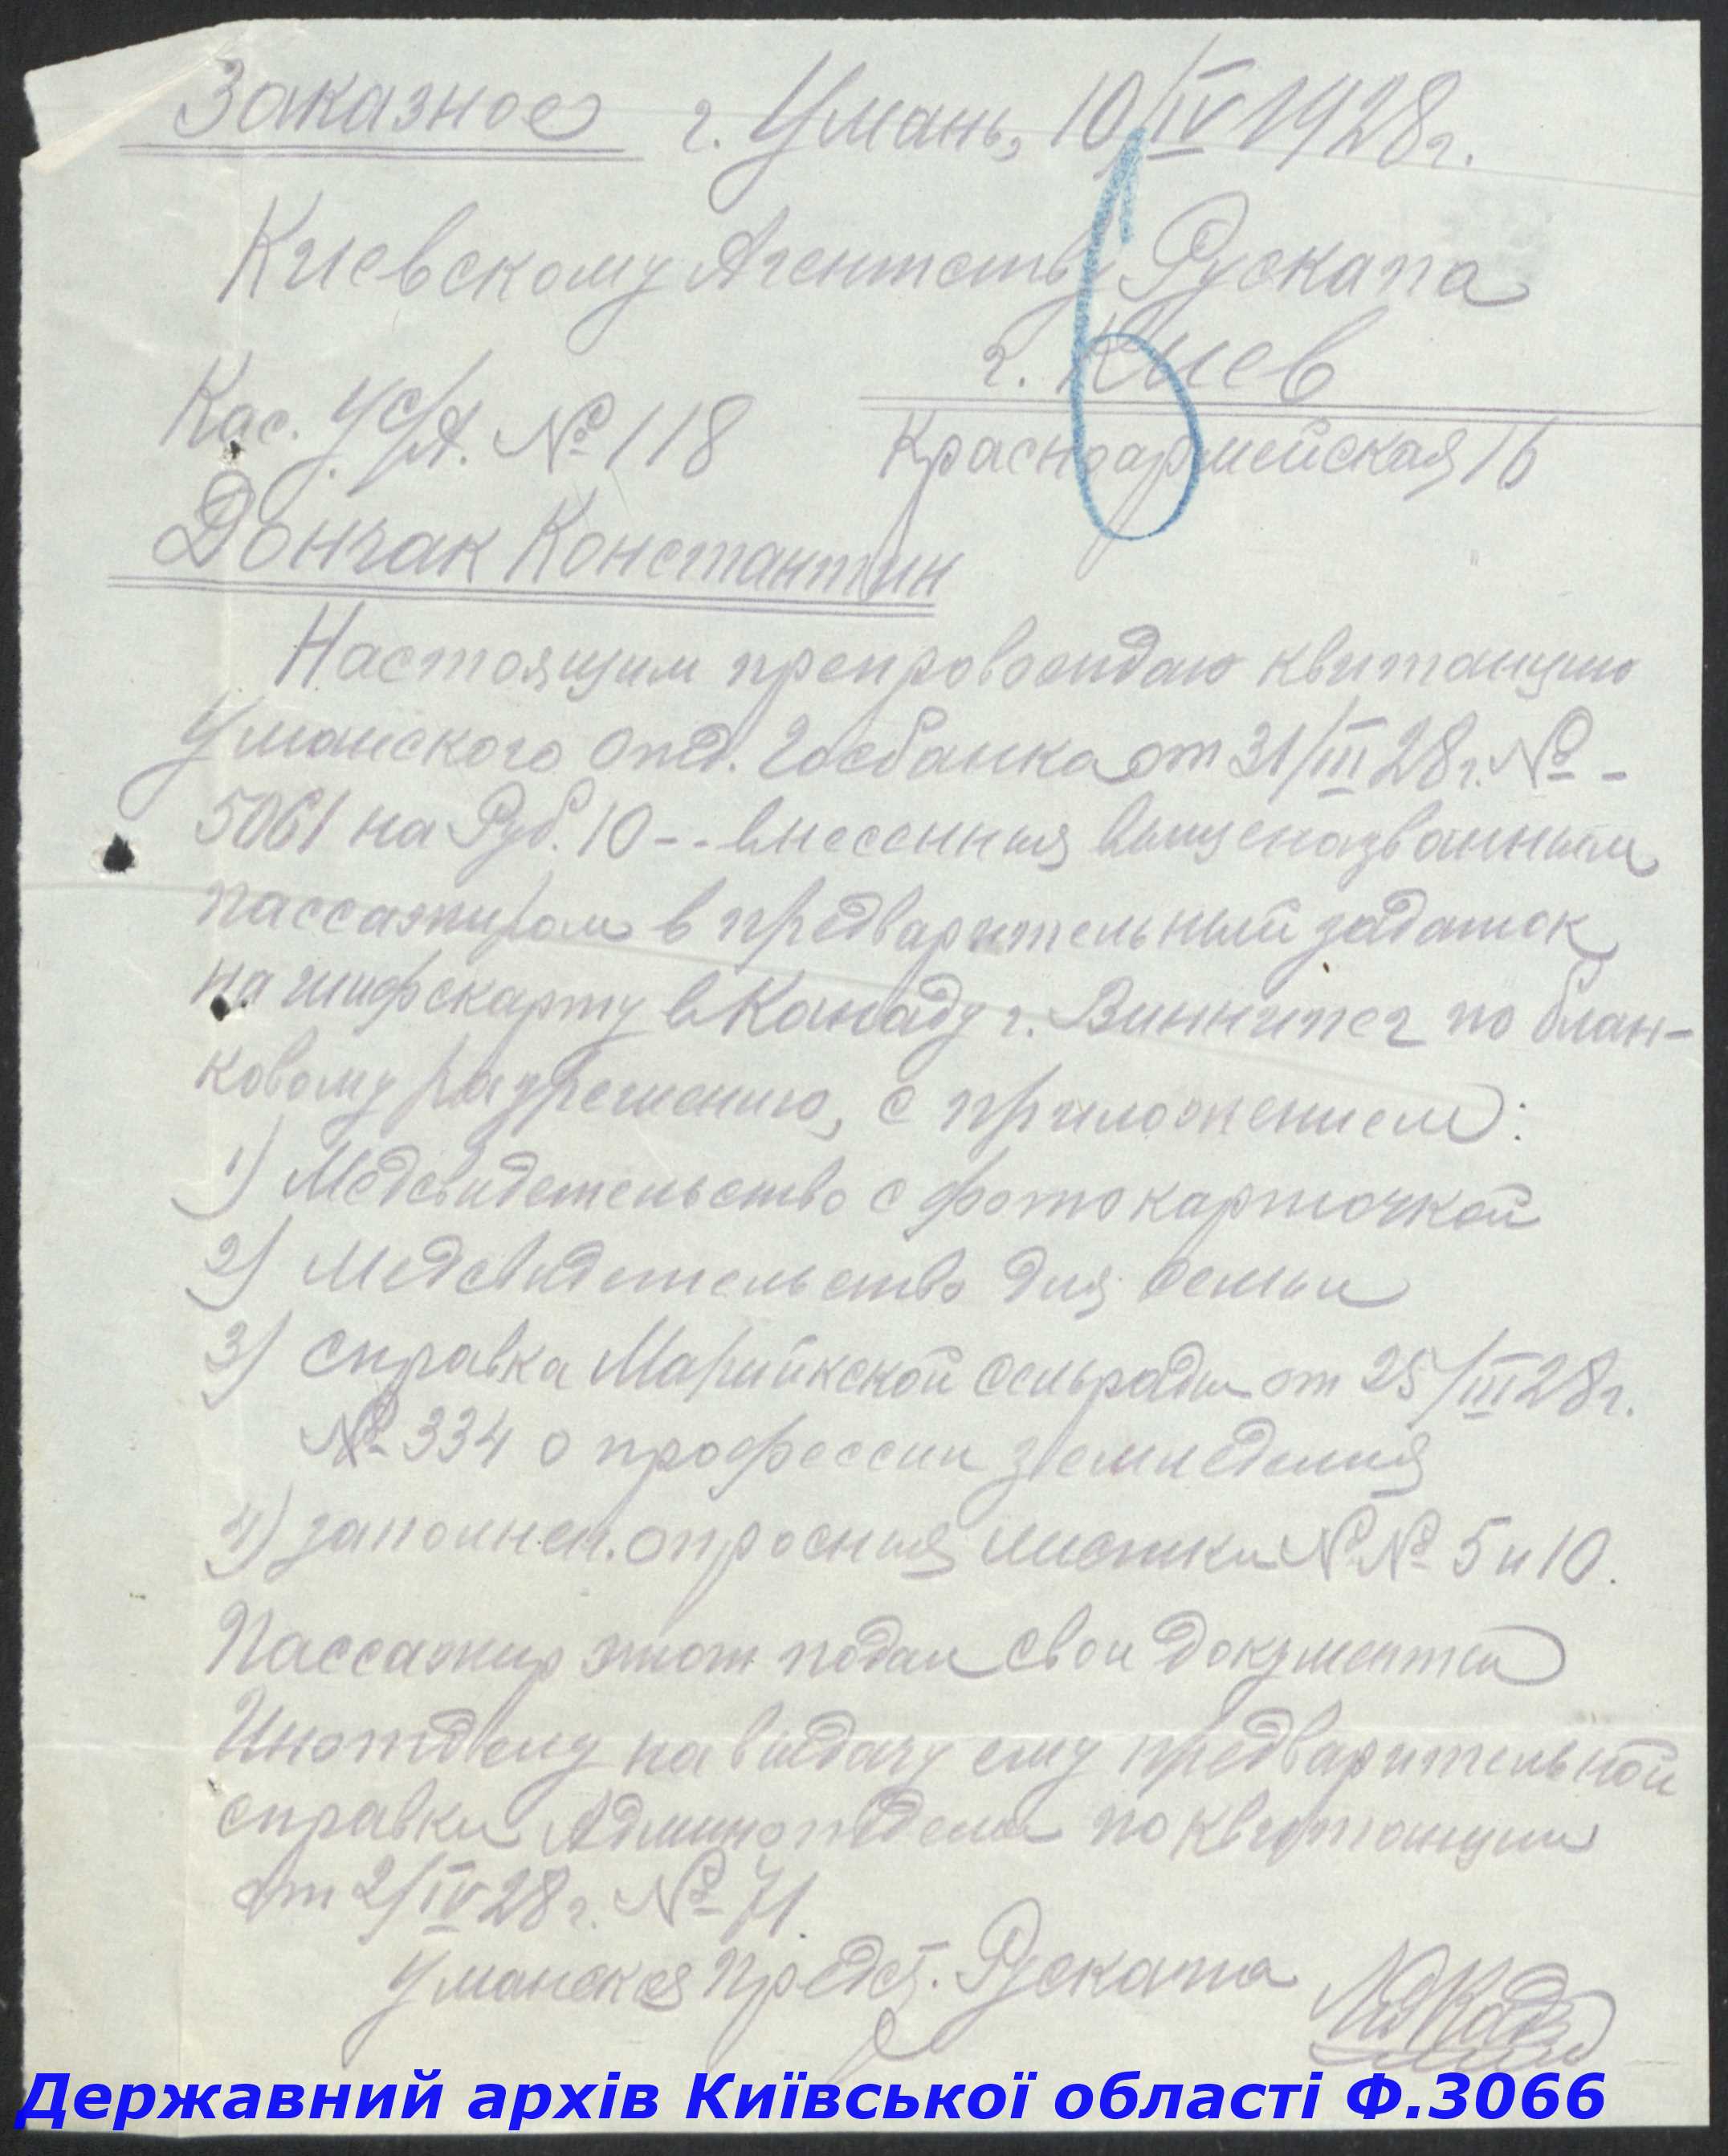 Заказное г. Умань, 10/IV 1928 г.
6
Киевскому Агентству Рускапа
г. Киев
Кас. № 118 Красноармейская 16
Дончак Константин
Настоящим препровождаю квитанцию
Уманского отд. Госбанка от 31/III 28 г. № -
5061 на Руб. 10 -- внесенныя вышеназванным
пассажиром в предварительный задаток
на шифскарту в Канаду г. Виннипег по блан-
ковому разрешению, с приложением:
1) Медсвидетельство с фотокарточкой
2) Медсвидетельство для семьи
3) Справка Марийкской сельрады от 25/III 28 г.
№ 334 о профессии
4) заполнен. опросныя листки №№ 5 и 10.
Пассажир этот подал свои документы
Инотделу на выдачу ему предварительной
справки Админотдела по квитанции
от 2/IV 28 г. № 71.
Предст. Рускапа
Державний архів Київської області Ф.3066